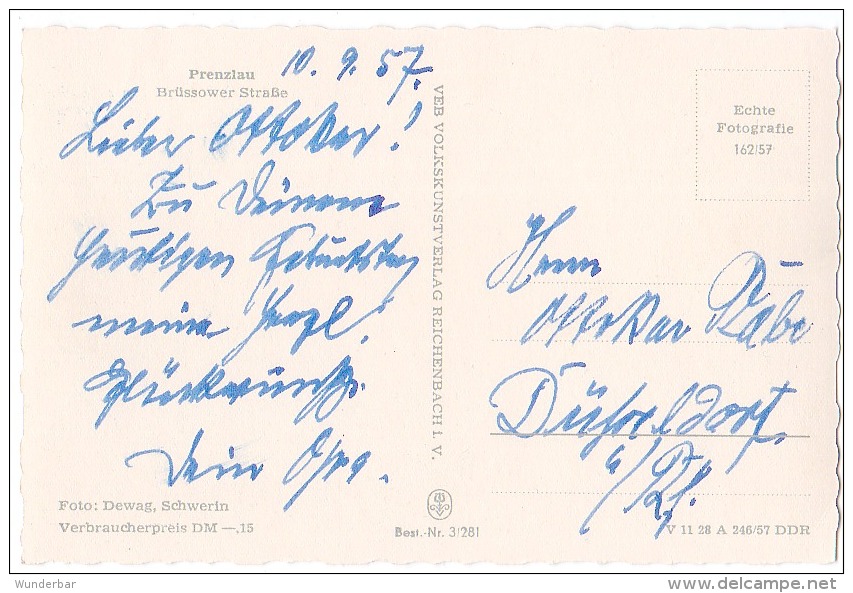 Prenzlau
Brüssower Straße
10. 9. 57.
Lieber Ottokar!
Zu Deinem
heutigen Geburtstag
meine herzl.
Glückwünsche.
Dein
VEB VOLKSKUNSTVERLAG REICHENBACH I. V.
Echte
Fotografie
162/57
Herrn
Ottokar
Düsseldorf
a/Rh.
Foto: Dewag, Schwerin
Verbraucherpreis DM —,15
Best.-Nr. 3/281
V 11 28 A 246/57 DDR
Wunderbar
www.delcampe.net